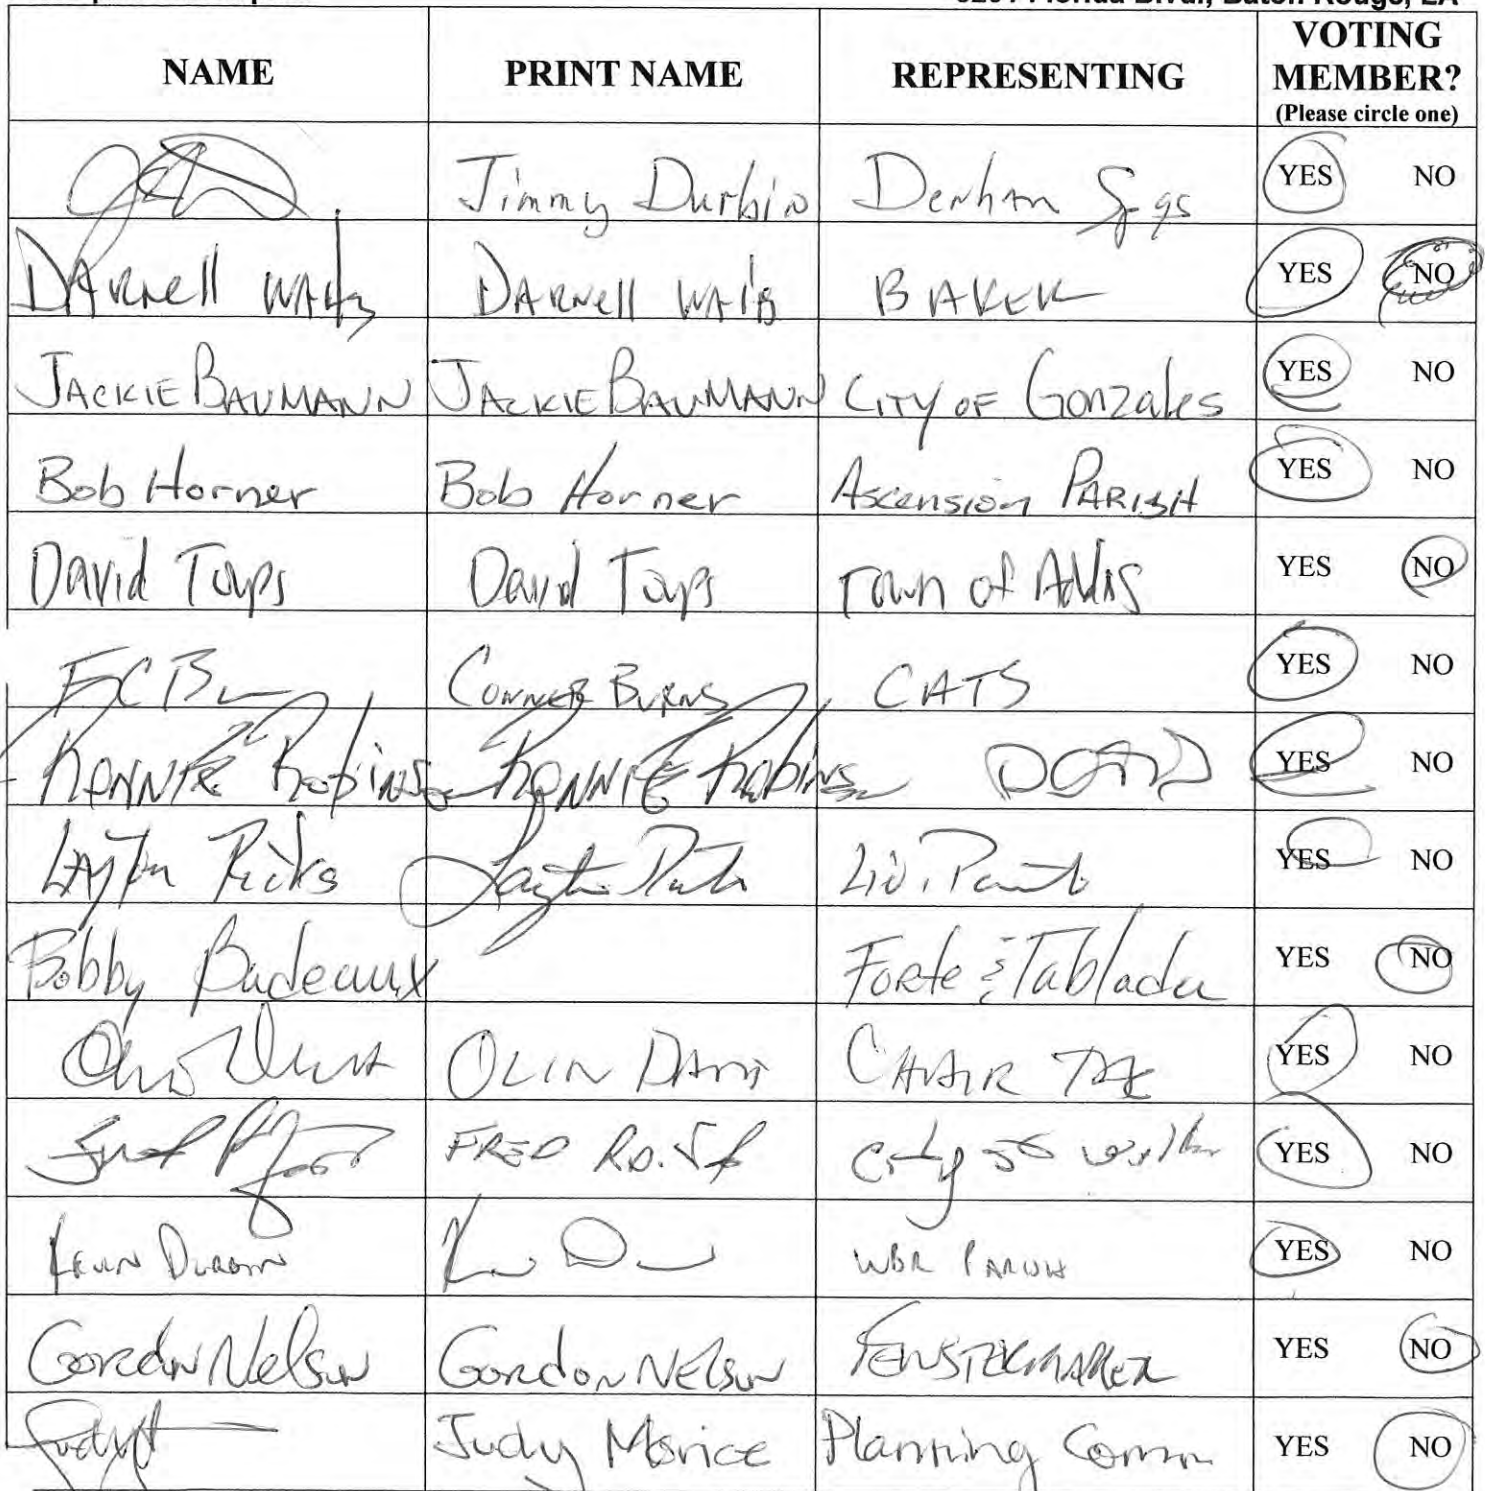 Florida Blvd., Baton Rouge, LA
NAME PRINT NAME REPRESENTING VOTING MEMBER?
(Please circle one)
Jimmy Durbin Denham Spgs YES NO
DARNell WAits DARNell WAits BAKER YES NO
JACKIE BAUMANN JACKIE BAUMANN CITY OF Gonzales YES NO
Bob Horner Bob Horner Ascension PARISH YES NO
David Toups David Toups Town of Addis YES NO
CONNER BURNS CATS YES NO
RONNIE Robinson RONNIE Robinson DOTD YES NO
LAyton Ricks Layton Ricks Liv. YES NO
Bobby Budeaux Forte & Tablada YES NO
OLIN CHAIR TAC YES NO
FRED City of YES NO
KEVIN DURBIN WBR PARISH YES NO
Gordon Nelson Gordon NELSON FENSTERMAKER YES NO
Judy Morice Planning Comm YES NO